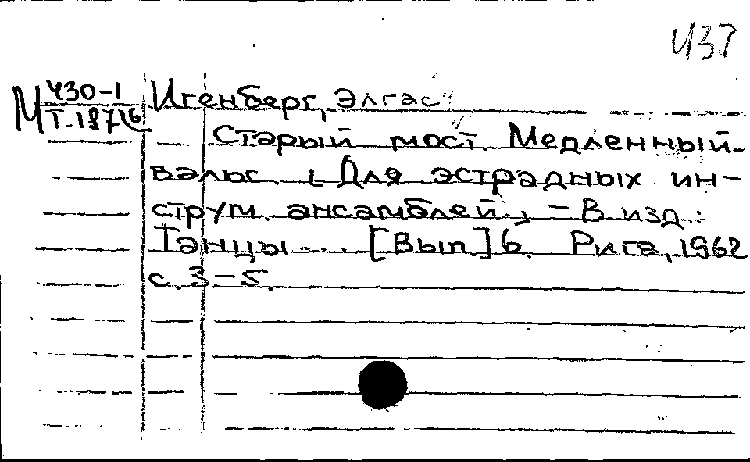 437
М Ч30-1
Т-187/6
Игенберг, Элгас
Старый мост. Медленный
вальс. [Для эстрадных ин-
струм. ансамблей]. - В изд.:
Танцы... [Вып.] 6. Рига, 1962
с. 3-5.